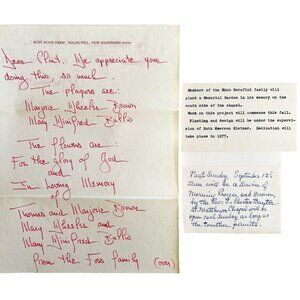 POST ROAD FARM, SUGAR HILL, NEW HAMPSHIRE
Dear Clint, We appreciate your
doing this, so much.
The plaques are:
Marjorie Wheeler Brown
Mary Winifred Bullis
The flowers are:
For the glory of God
and
In Loving Memory
of
Thomas and Marjorie Brown
Mary Wheeler and
Mary Winifred Bullis
from the Foss family
(over)
Members of the Serafini family will
plant a Memorial Garden in his memory on the
south side of the chapel.
Work on this project will commence this fall.
Planting and design will be under the supervis-
ion of Ruth Emerson Kleiner. Dedication will
take place in 1977.
Next Sunday September 12
there will be a service of
Morning Prayer and Sermon
by the Rev.
St. Matthew's Chapel will be
open each Sunday as long as
the weather permits.